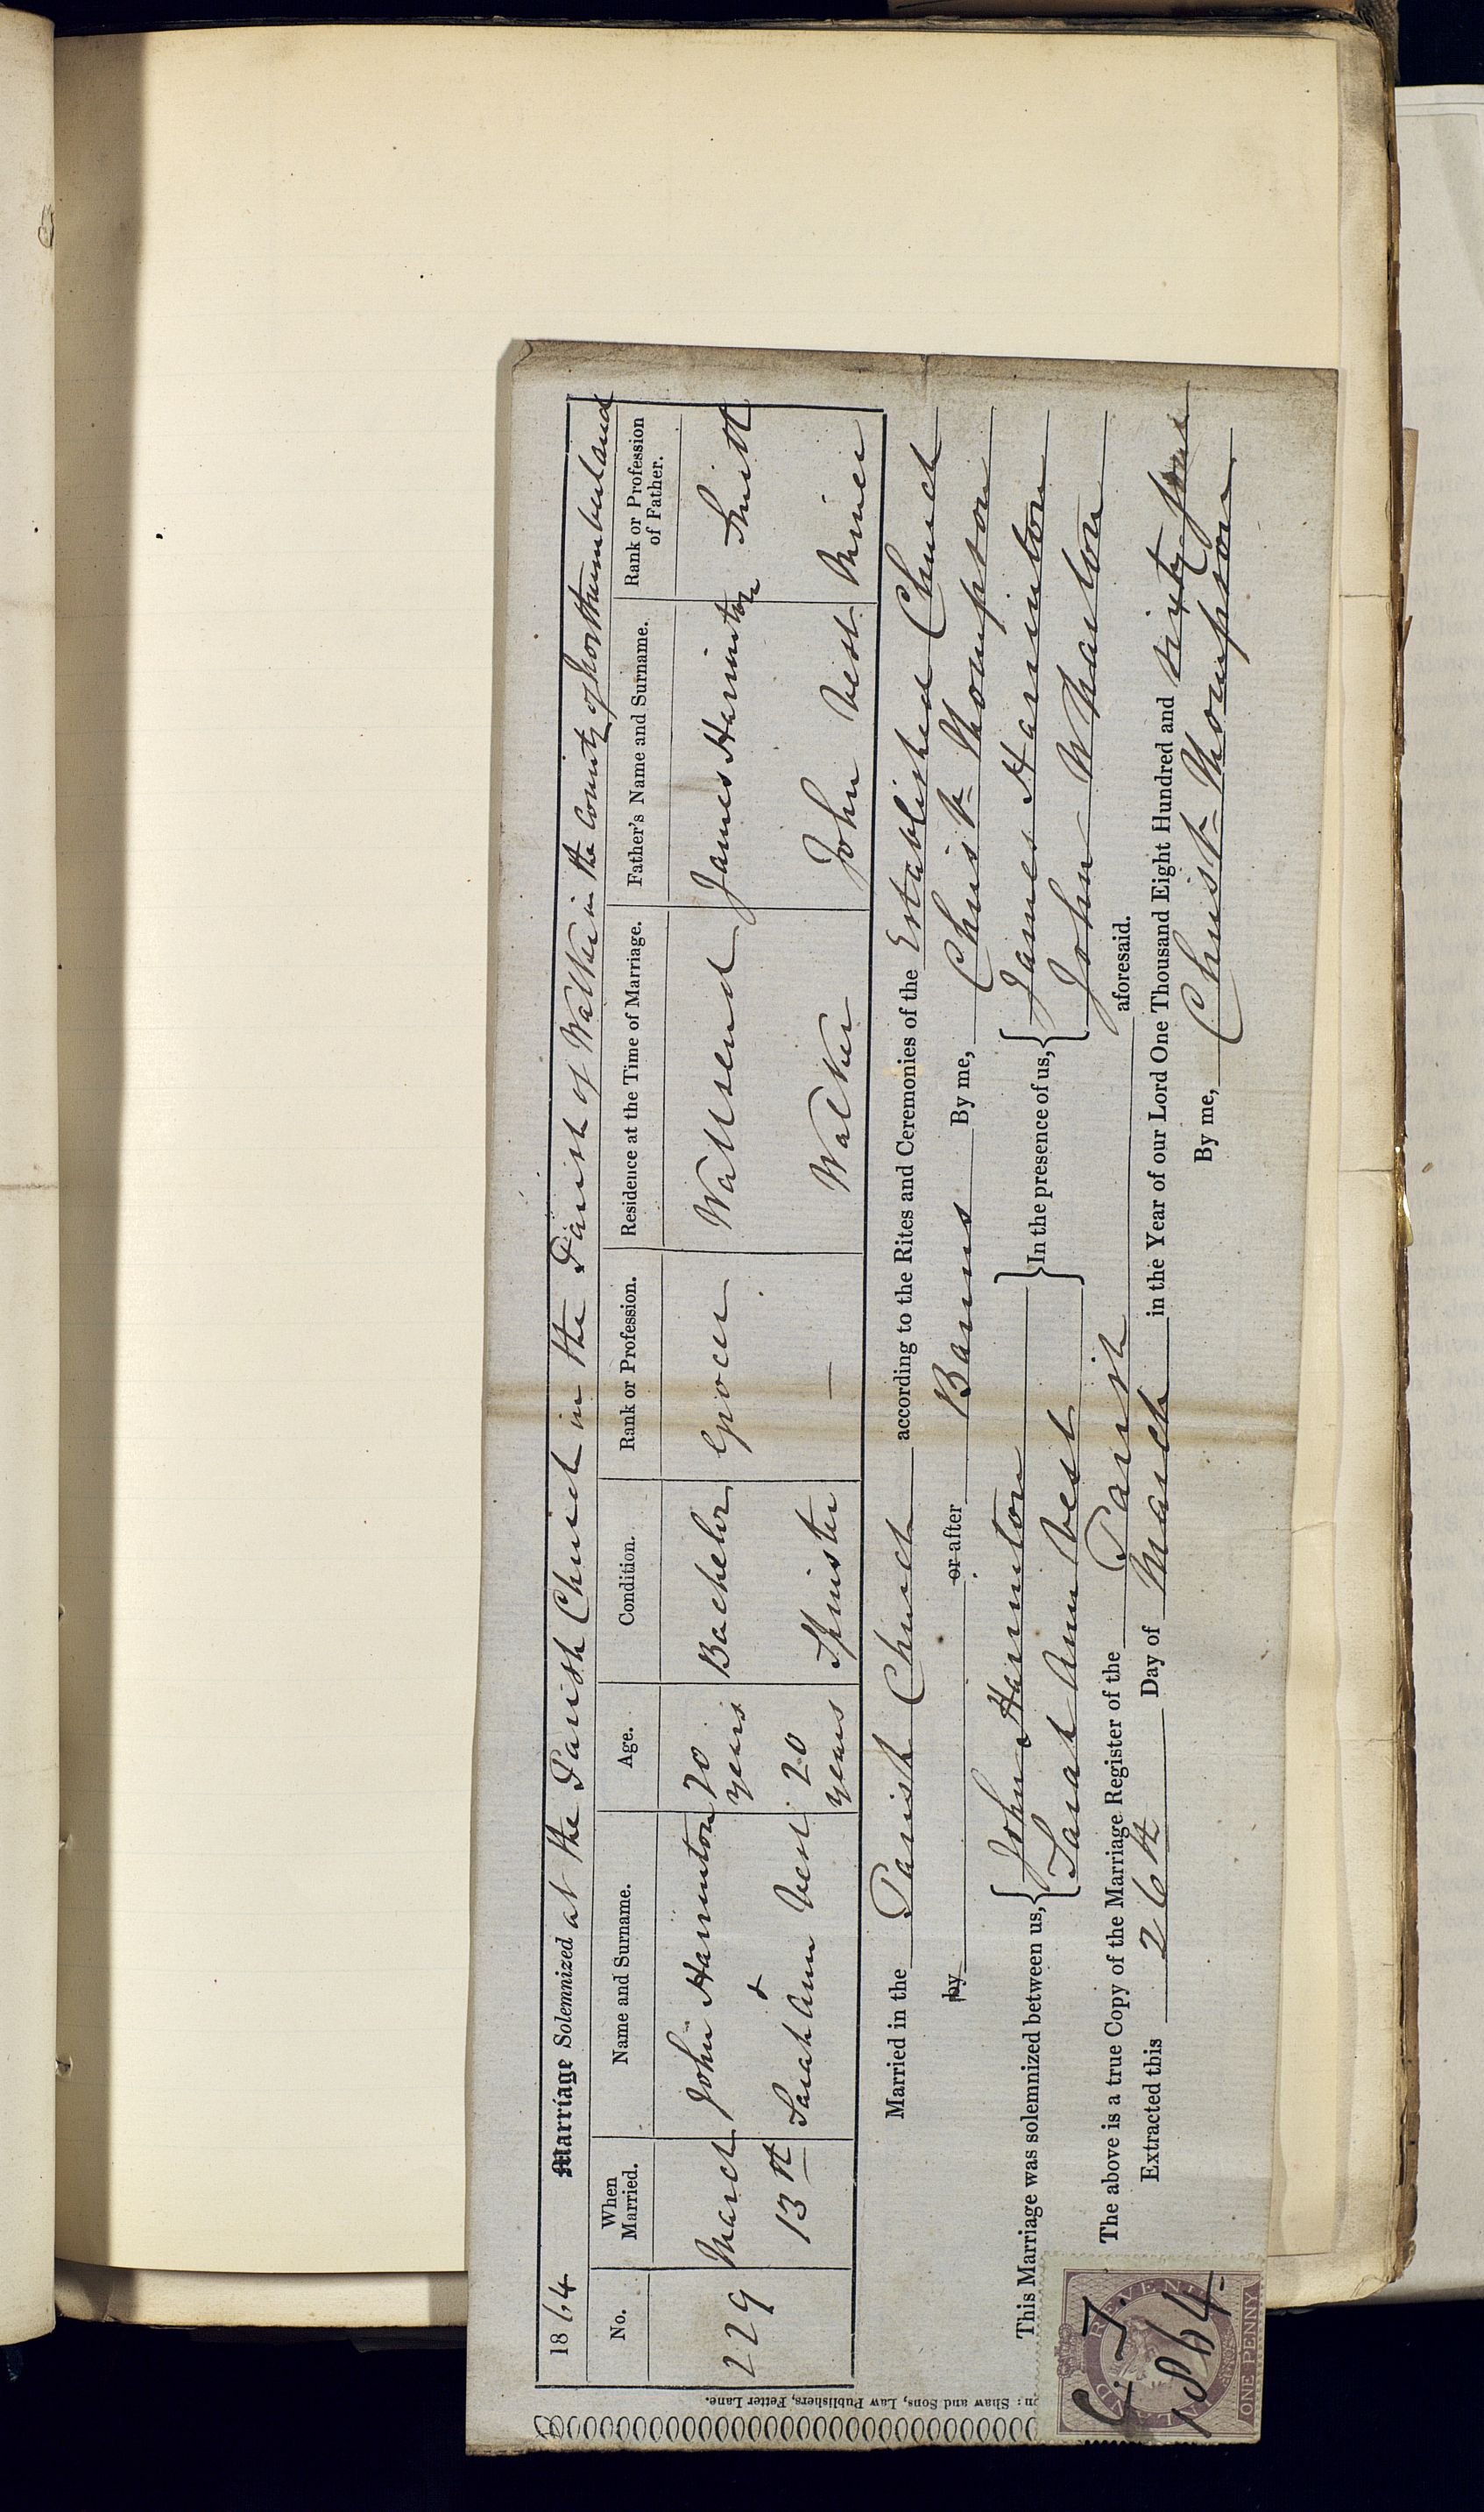 1864 Marriage Solemnized at the Parish Church in the Parish of Walker in the County of Northumberland
No. When Married. Name and Surname. Age. Condition. Rank or Profession. Residence at the Time of Marriage. Father's Name and Surname. Rank or Profession of Father.
229 March 13th John Harrinton 20 years Bachelor Grocer Wallsend James Harrinton Smith
&
Sarah Ann Best 20 years Spinster — Walker John Best Miner
Married in the Parish Church according to the Rites and Ceremonies of the Established Church
by or after Banns By me, Christr Thompson
This Marriage was solemnized between us, { John Harrinton } In the presence of us, { James Harrinton
Sarah Ann Best John Wharton
The above is a true Copy of the Marriage Register of the Parish aforesaid.
Extracted this 26th Day of March in the Year of our Lord One Thousand Eight Hundred and sixty four
By me, Christr Thompson
n: Shaw and Sons, Law Publishers, Fetter Lane.
INLAND REVENUE
ONE PENNY
C. T.
1864